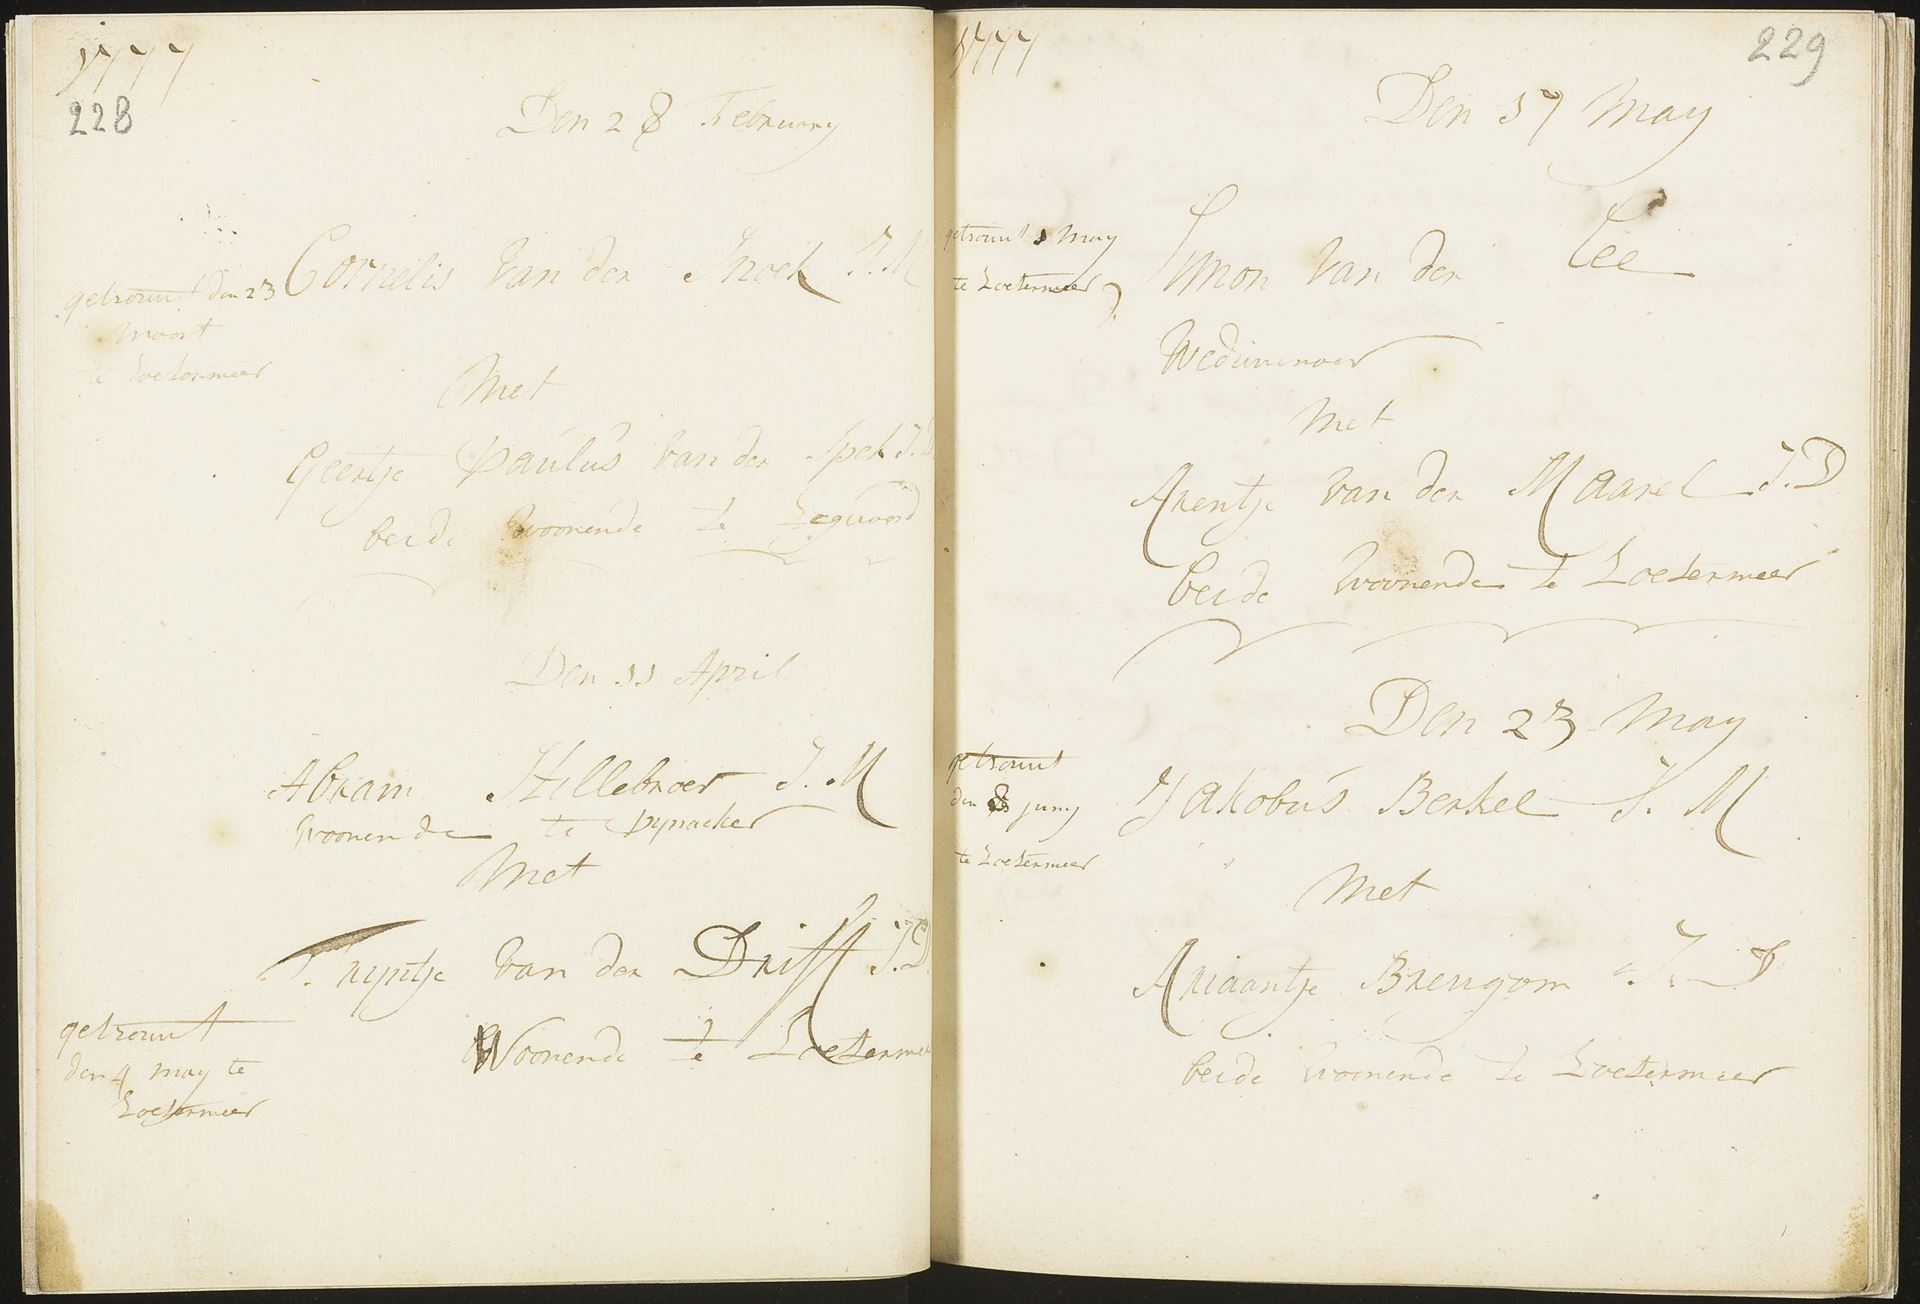 1777
228
Den 28 February
getrouwt den 23
maart
te Zoetermeer
Cornelis van der Snoek J.M
Met
Geertje Paulus van der Spek J.D
beide woonende te Zegwaard
Den 11 April
Abram Hillebroer J.M
woonende te Pynacker
Met
Tryntje van der Drift J.D
Woonende te Zoetermeer
getrouwt
den 4 may te
Zoetermeer
1777
229
Den 17 May
getrouwt may
te Zoetermeer
Simon van der Lee
Weduwenaar
Met
Arentje van der Maarel J.D
beide woonende te Zoetermeer
Den 23 May
getrouwt
den 8 juny
te Zoetermeer
Jakobus Berkel J.M
Met
Ariaantje Breugom J.D
beide woonende te Zoetermeer